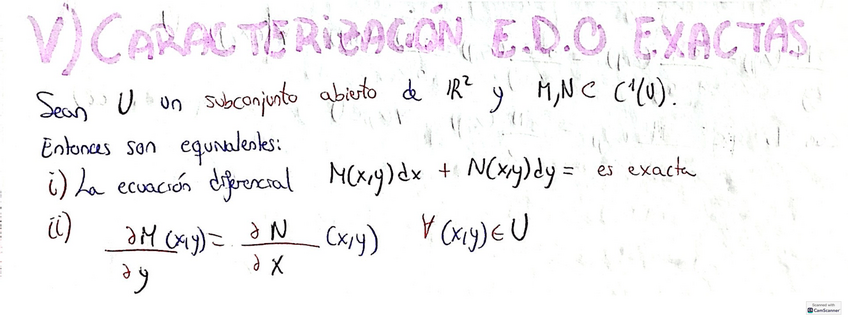 V) CARACTERIZACIÓN E.D.O EXACTAS
Sean U un subconjunto abierto de ℝ² y M,N ⊂ C¹(U).
Entonces son equivalentes:
i) La ecuación diferencial M(x,y)dx + N(x,y)dy = es exacta
ii) ∂M/∂y (x,y) = ∂N/∂x (x,y) ∀(x,y)∈U
Scanned with
CamScanner